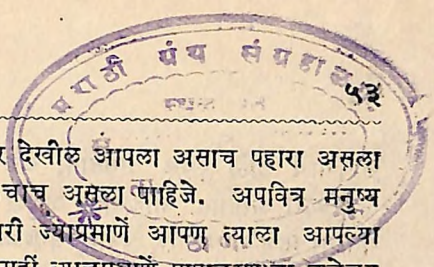 मराठी ग्रंथ संग्रहालय
५३
र देखील आपला असाच पहारा असला
चाच असला पाहिजे. अपवित्र मनुष्य
री ज्याप्रमाणें आपण त्याला आपल्या